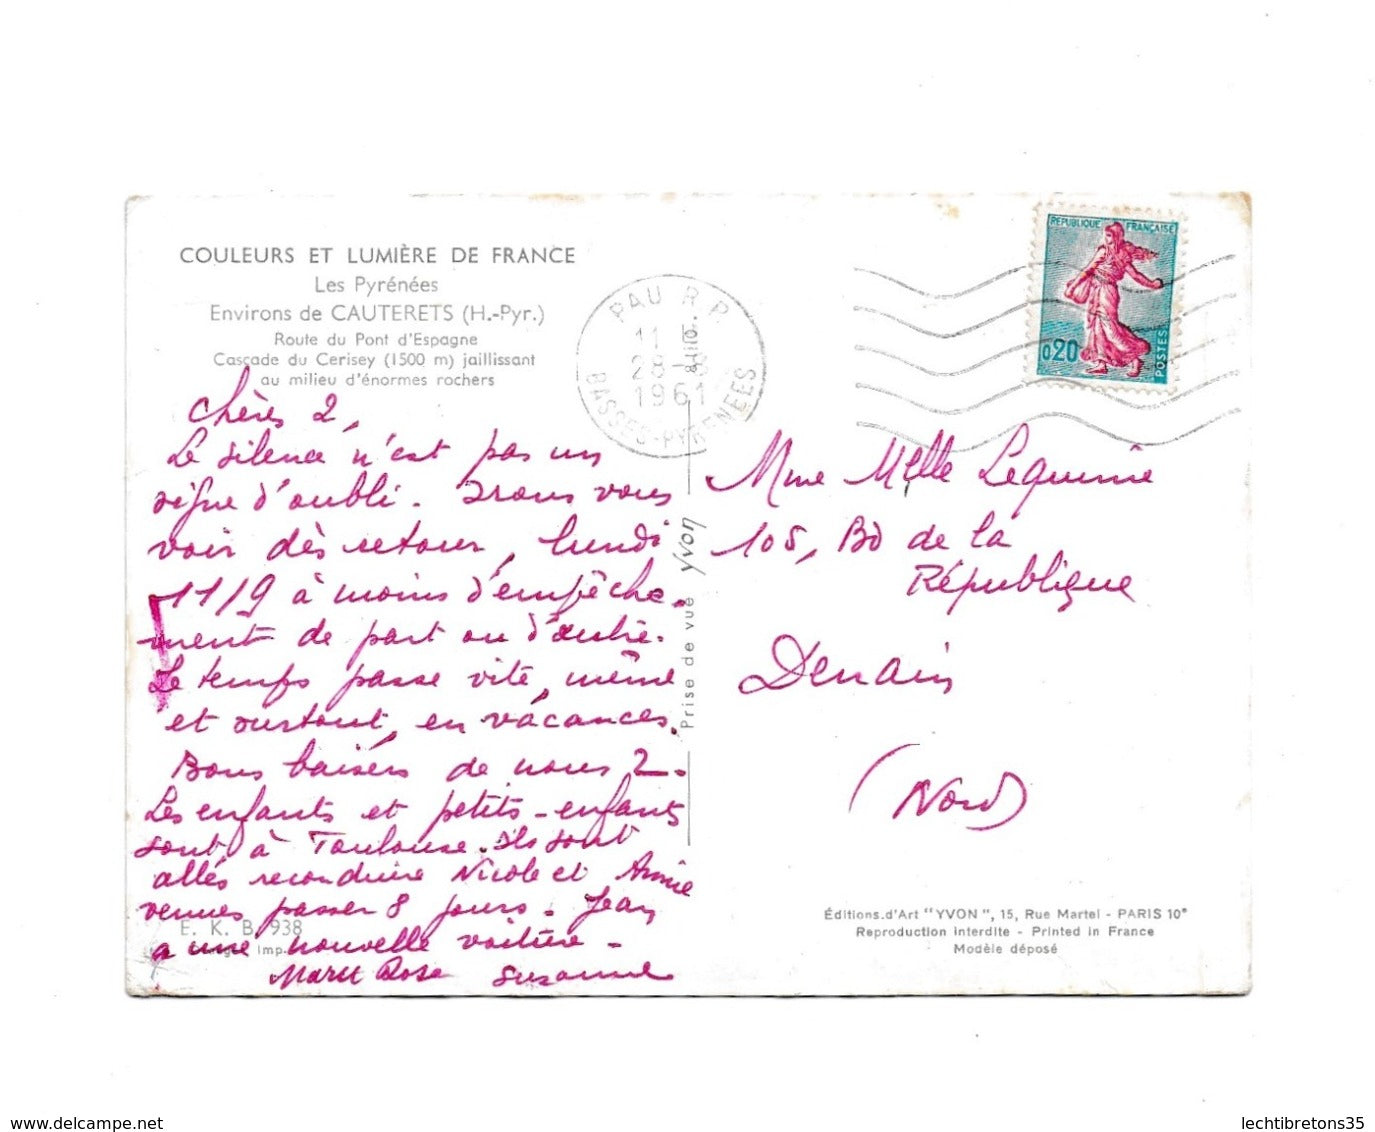 COULEURS ET LUMIÈRE DE FRANCE
Les Pyrénées
Environs de CAUTERETS (H.-Pyr.)
Route du Pont d'Espagne
Cascade du Cerisey (1500 m) jaillissant
au milieu d'énormes rochers
Chères 2,
Le silence n'est pas un
signe d'oubli. Irons vous
voir dès retour, lundi
11/9 à moins d'empêche-
ment de part ou d'autre.
Le temps passe vite, même
et surtout, en vacances.
Bons baisers de nous 2.
Les enfants et petits-enfants
sont à Toulouse. Ils sont
allés reconduire Nicole et Annie
venues passer 8 jours. Jean
a une nouvelle voiture -
Marie Rose Suzanne
E. K. B. 938
Imp.
PAU R.P.
11 H
28 - 8
1961
BASSES-PYRENEES
Prise de vue Yvon
REPUBLIQUE FRANÇAISE
0,20
POSTES
Mme Melle Lequime
105, Bd de la
République
Denain
(Nord)
Éditions d'Art "YVON", 15, Rue Martel - PARIS 10e
Reproduction interdite - Printed in France
Modèle déposé
www.delcampe.net
lechtibretons35